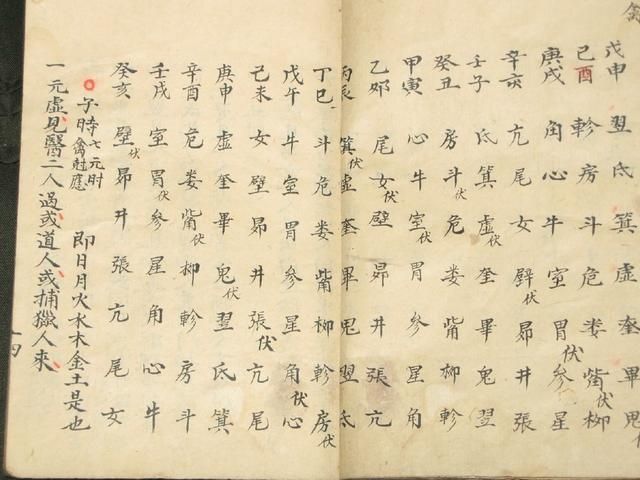 戊申 翌氐箕虛奎畢鬼伏
己酉 軫房斗危娄觜伏柳
庚戌 角心牛室胃伏参星
辛亥 亢尾女壁伏昴井張
壬子 氐箕虛伏奎畢鬼翌
癸丑 房斗伏危娄觜柳軫
甲寅 心牛室伏胃参星角
乙卯 尾女伏壁昴井張亢
丙辰 箕伏虛奎畢鬼翌氐
丁巳 斗危娄觜柳軫房伏
戊午 牛室胃参星角伏心
己未 女壁昴井張伏亢尾
庚申 虛奎畢鬼伏翌氐箕
辛酉 危娄觜伏柳軫房斗
壬戌 室胃伏参星角心牛
癸亥 壁伏昴井張亢尾女
子時七元时禽尅應 即日月火水木金土是也
一元虛見醫二人過或道人或捕獵人來